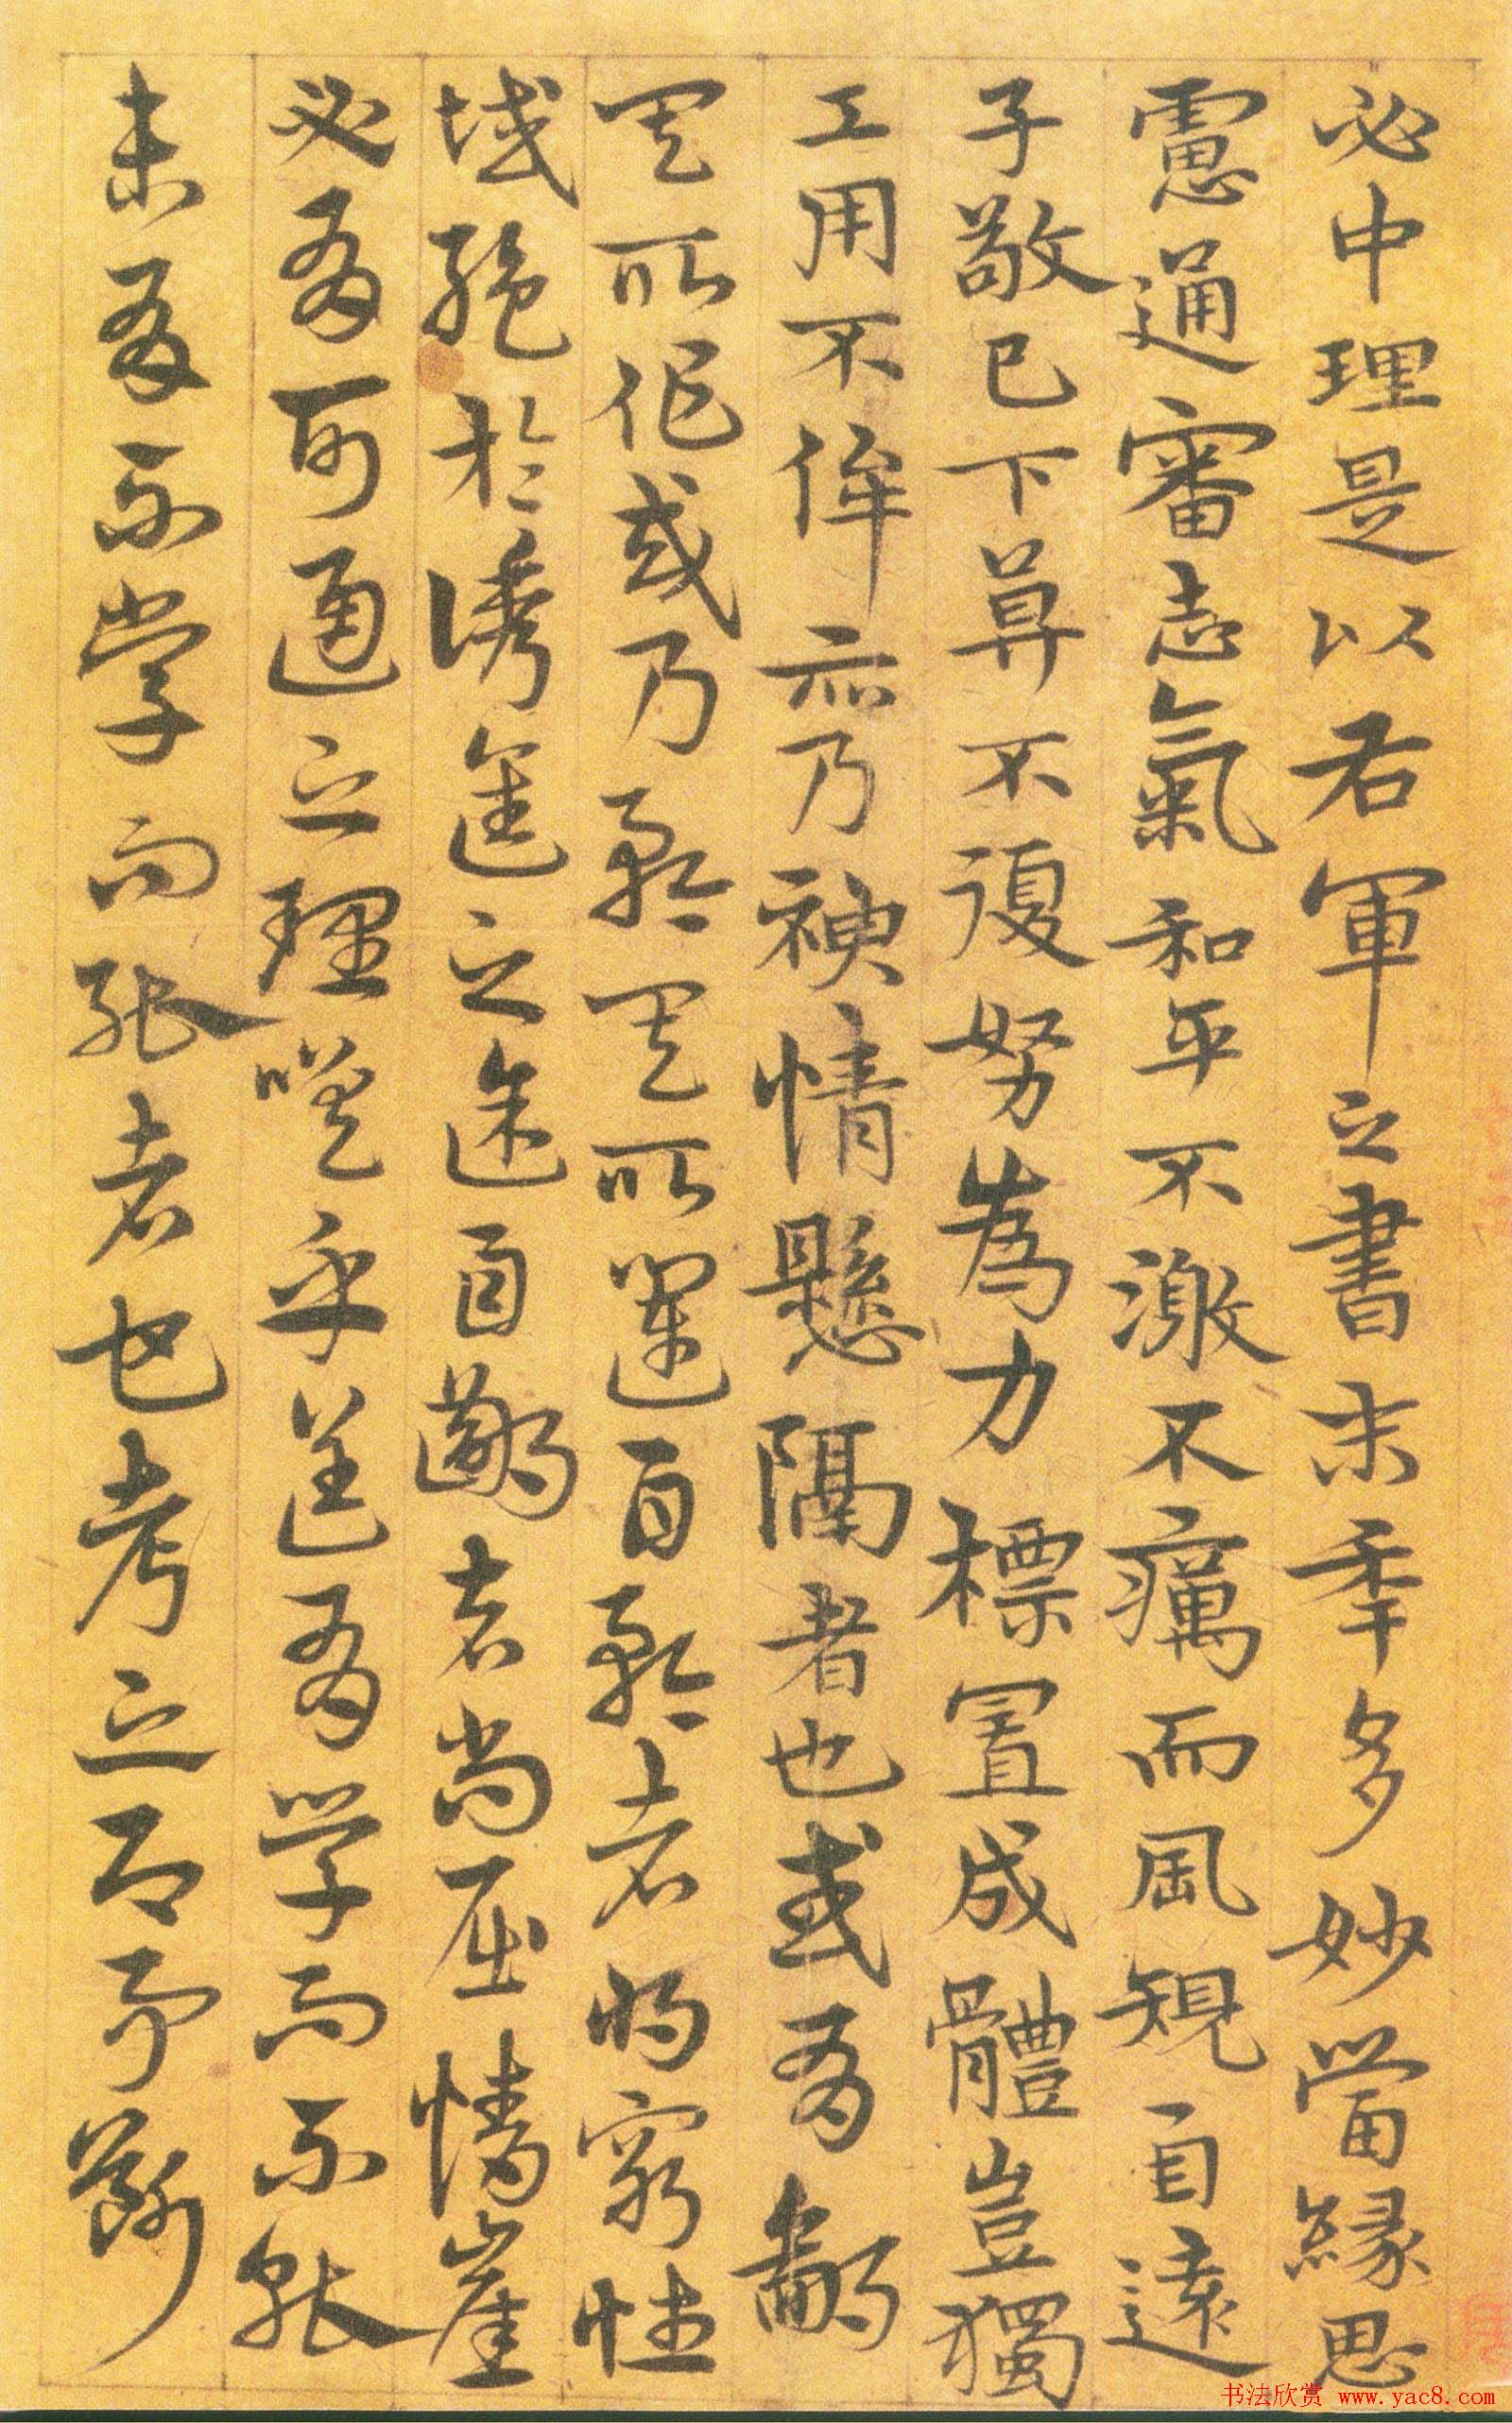 必中理是以右軍之書末年多妙當緣思
慮通審志氣和平不激不癘而風規自遠
子敬已下莫不鼓努為力標置成體豈獨
工用不侔亦乃神情懸隔者也或有鄙
其所作或乃矜其所運自矜者將窮性
域絕於誘進之途自鄙者尚屈情崖
必有可通之理嗟乎蓋有學而不能
未有不學而能者也考之即事斷
书法欣赏 www.yac8.com